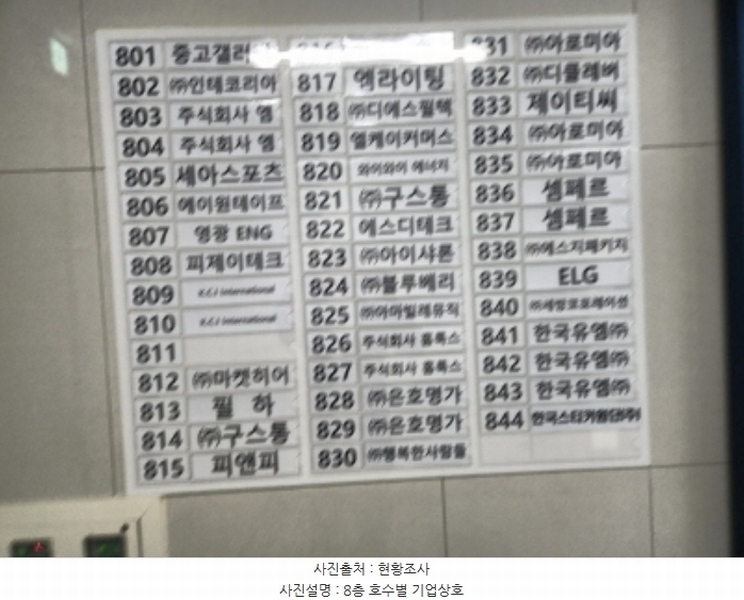 801 중고갤러
802 ㈜인테코리아
803 주식회사 엠
804 주식회사 엠
805 세아스포츠
806 에이원테이프
807 영광 ENG
808 피제이테크
809 K.C.I International
810 K.C.I International
811
812 ㈜마켓히어
813 필 하
814 ㈜구스통
815 피앤피
817 엠라이팅
818 ㈜디에스필텍
819 엘케이커머스
820 와이와이 에너지
821 ㈜구스통
822 에스디테크
823 ㈜아이샤론
824 ㈜블루베리
825 ㈜아마빌레뮤직
826 주식회사 홈룩스
827 주식회사 홈룩스
828 ㈜은호명가
829 ㈜은호명가
830 ㈜행복한사람들
831 ㈜아로미아
832 ㈜디클레버
833 제이티씨
834 ㈜아로미아
835 ㈜아로미아
836 셈페르
837 셈페르
838 ㈜에스지패키지
839 ELG
840 ㈜세명코포레이션
841 한국유엠㈜
842 한국유엠㈜
843 한국유엠㈜
844 한국스티커원단(주)
사진출처 : 현황조사
사진설명 : 8층 호수별 기업상호